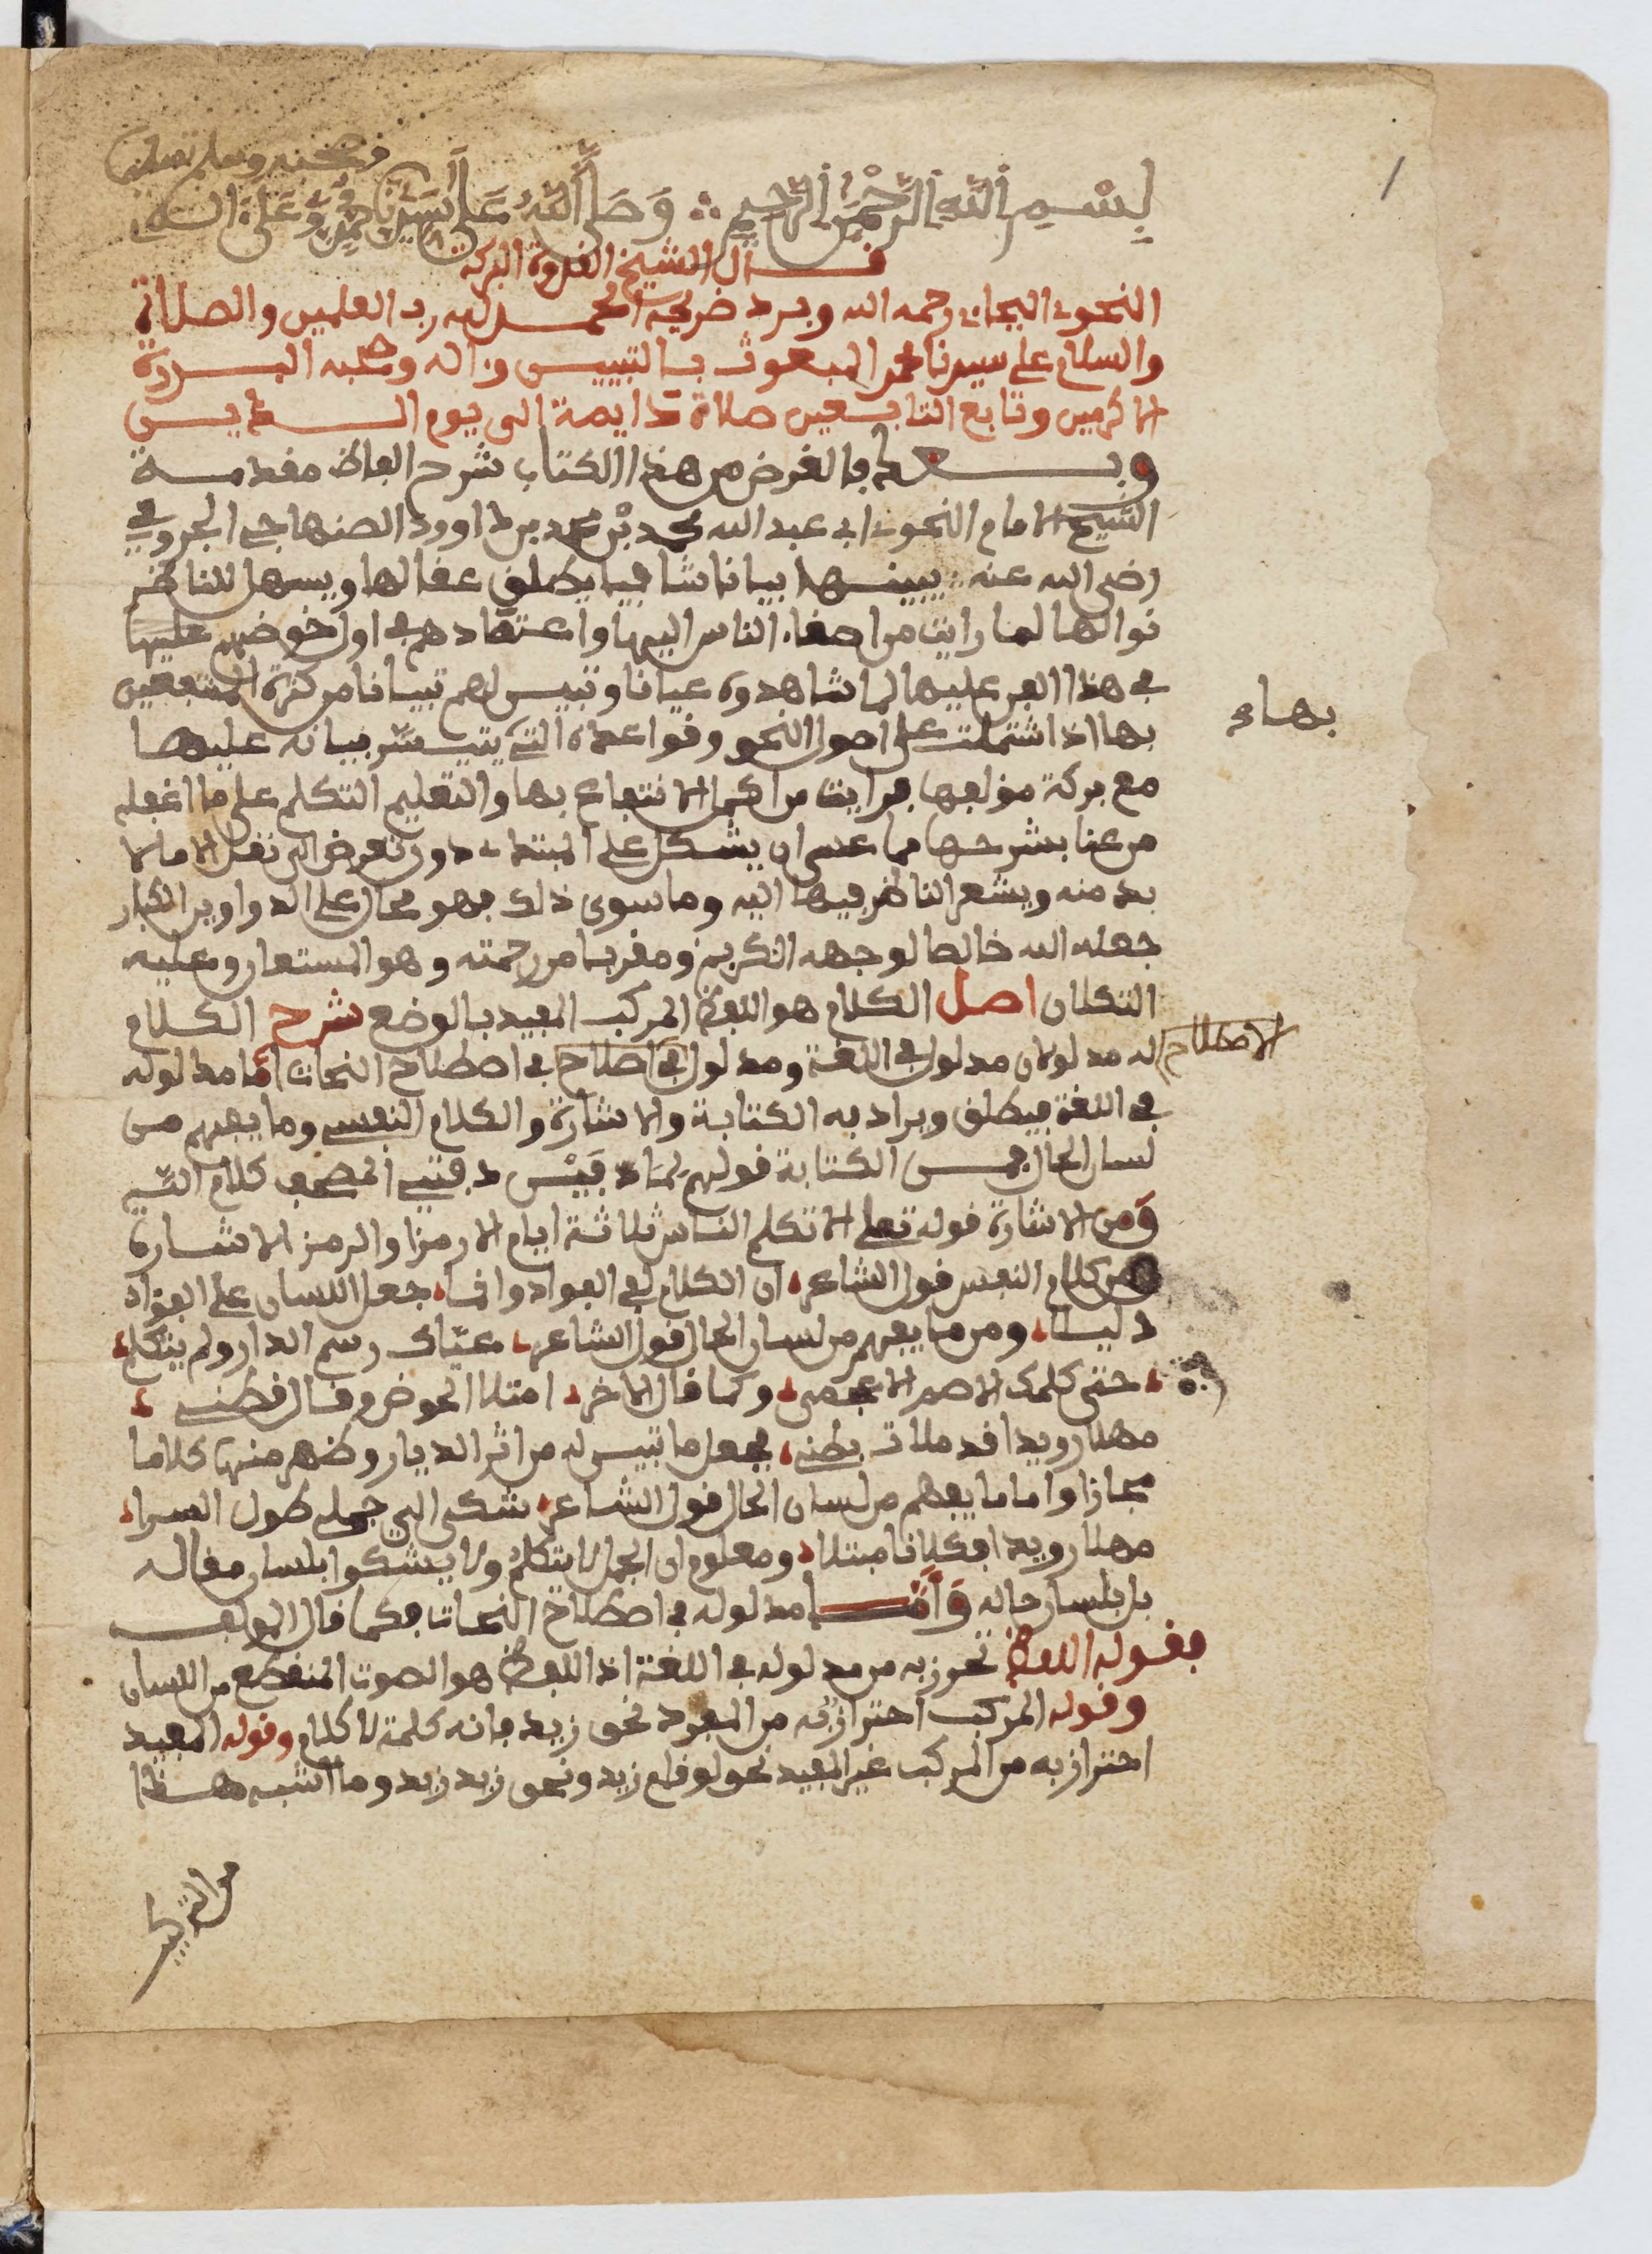 وصحبه وسلم تسليما
بِسْمِ اللَّهِ الرَّحْمَنِ الرَّحِيمِ وَصَلَّى اللَّهُ عَلَى سَيِّدِنَا مُحَمَّدٍ وَعَلَى ءاله
قال الشيخ القدوة البركة
النحوي البجائي رحمه الله وبرد ضريحه الحمد لله رب العلمين والصلاة
والسلام على سيدنا محمد المبعوث بالتبيين وءاله وصحبه البررة
الاكرمين وتابع التابعين صلاة دايمة الى يوم الدين
وبعد فالغرض من هذا الكتاب شرح الفاظ مقدمة
الشيخ الامام النحوي ابي عبد الله محمد بْن محمد بن داوود الصنهاجي الجرومي
رضي الله عنه يبينها بيانا شافيا يطلق عقالها ويسهل للناظر
نوالها لما رايت من اصغاء الناس اليها واعتقادهم في اول خوضهم عليها
في هذا الفن عليها لما شاهدوه عيانا وتبين لهم تبيانا من كثرة المنتفعين
بها اذ اشتملت على اصول النحو وقواعده التي يتيسر بيانه عليها
بهاء
مع بركة مؤلفها فرايت من اكمل الانتفاع بها والتعليم التكلم على ما اغفله
من عنا بشرحها مما عسى ان يشكل على المبتدي دون تعرض الى نقل الا ما لا
بد منه ويشعر الناظر فيها اليه وما سوى ذلك فهو محال على الدواوين الكبار
جعله الله خالصا لوجهه الكريم ومقربا من رحمته وهو المستعان وعليه
التكلان اصل الكلام هو اللفظ المركب المفيد بالوضع شرح الكلام
الاصطلاح
له مدلولان مدلول في اللغة ومدلول في اصلاح في اصطلاح النحات اما مدلوله
في اللغة فيطلق ويراد به الكتابة والاشارة والكلام النفسي وما يفهم من
لسان الحال فمن الكتابة قولهم لما بين دفتي المصحف كلام الله
وَمن الاشارة قوله تعلى الا تكلم الناس ثلاثة ايام الا رمزا والرمز الاشارة
ومن كلام النفس قول الشاعر ان الكلام لفي الفواد وانما جعل اللسان على الفؤاد
دليلا ومن ما يفهم من لسان الحال قول الشاعر عيّاك رسم الدار ولم يتكلم
حتى كلمك الاصم الاعجمي وكما قال الاخر امتلا الحوض وقال قطني
مهلا رويدا قد ملات بطني فجعل ما تبين له من اثر الديار وظهر منها كلاما
مجازا واما ما يفهم من لسان الحال قول الشاعر شكى الي جملي طول السرا
مهلا رويدا فكلانا مبتلا ومعلوم ان الجمل لا يتكلم ولا يشكوا بلسان مقاله
بل بلسان حاله وَأَمَّا مدلوله في اصطلاح النحات فكما قال المولف
فقوله اللفظ تحرز به من مدلوله في اللغة اذ اللفظ هو الصوت المنقطع من اللسان
وقوله المركب احترازبه من المفرد نحو زيد فانه كلمة لا كلام وقوله المفيد
احترازبه من المركب غير المفيد نحو لو قام زيد ونحو زيد زيد وما اشبه هذا
من التركيب